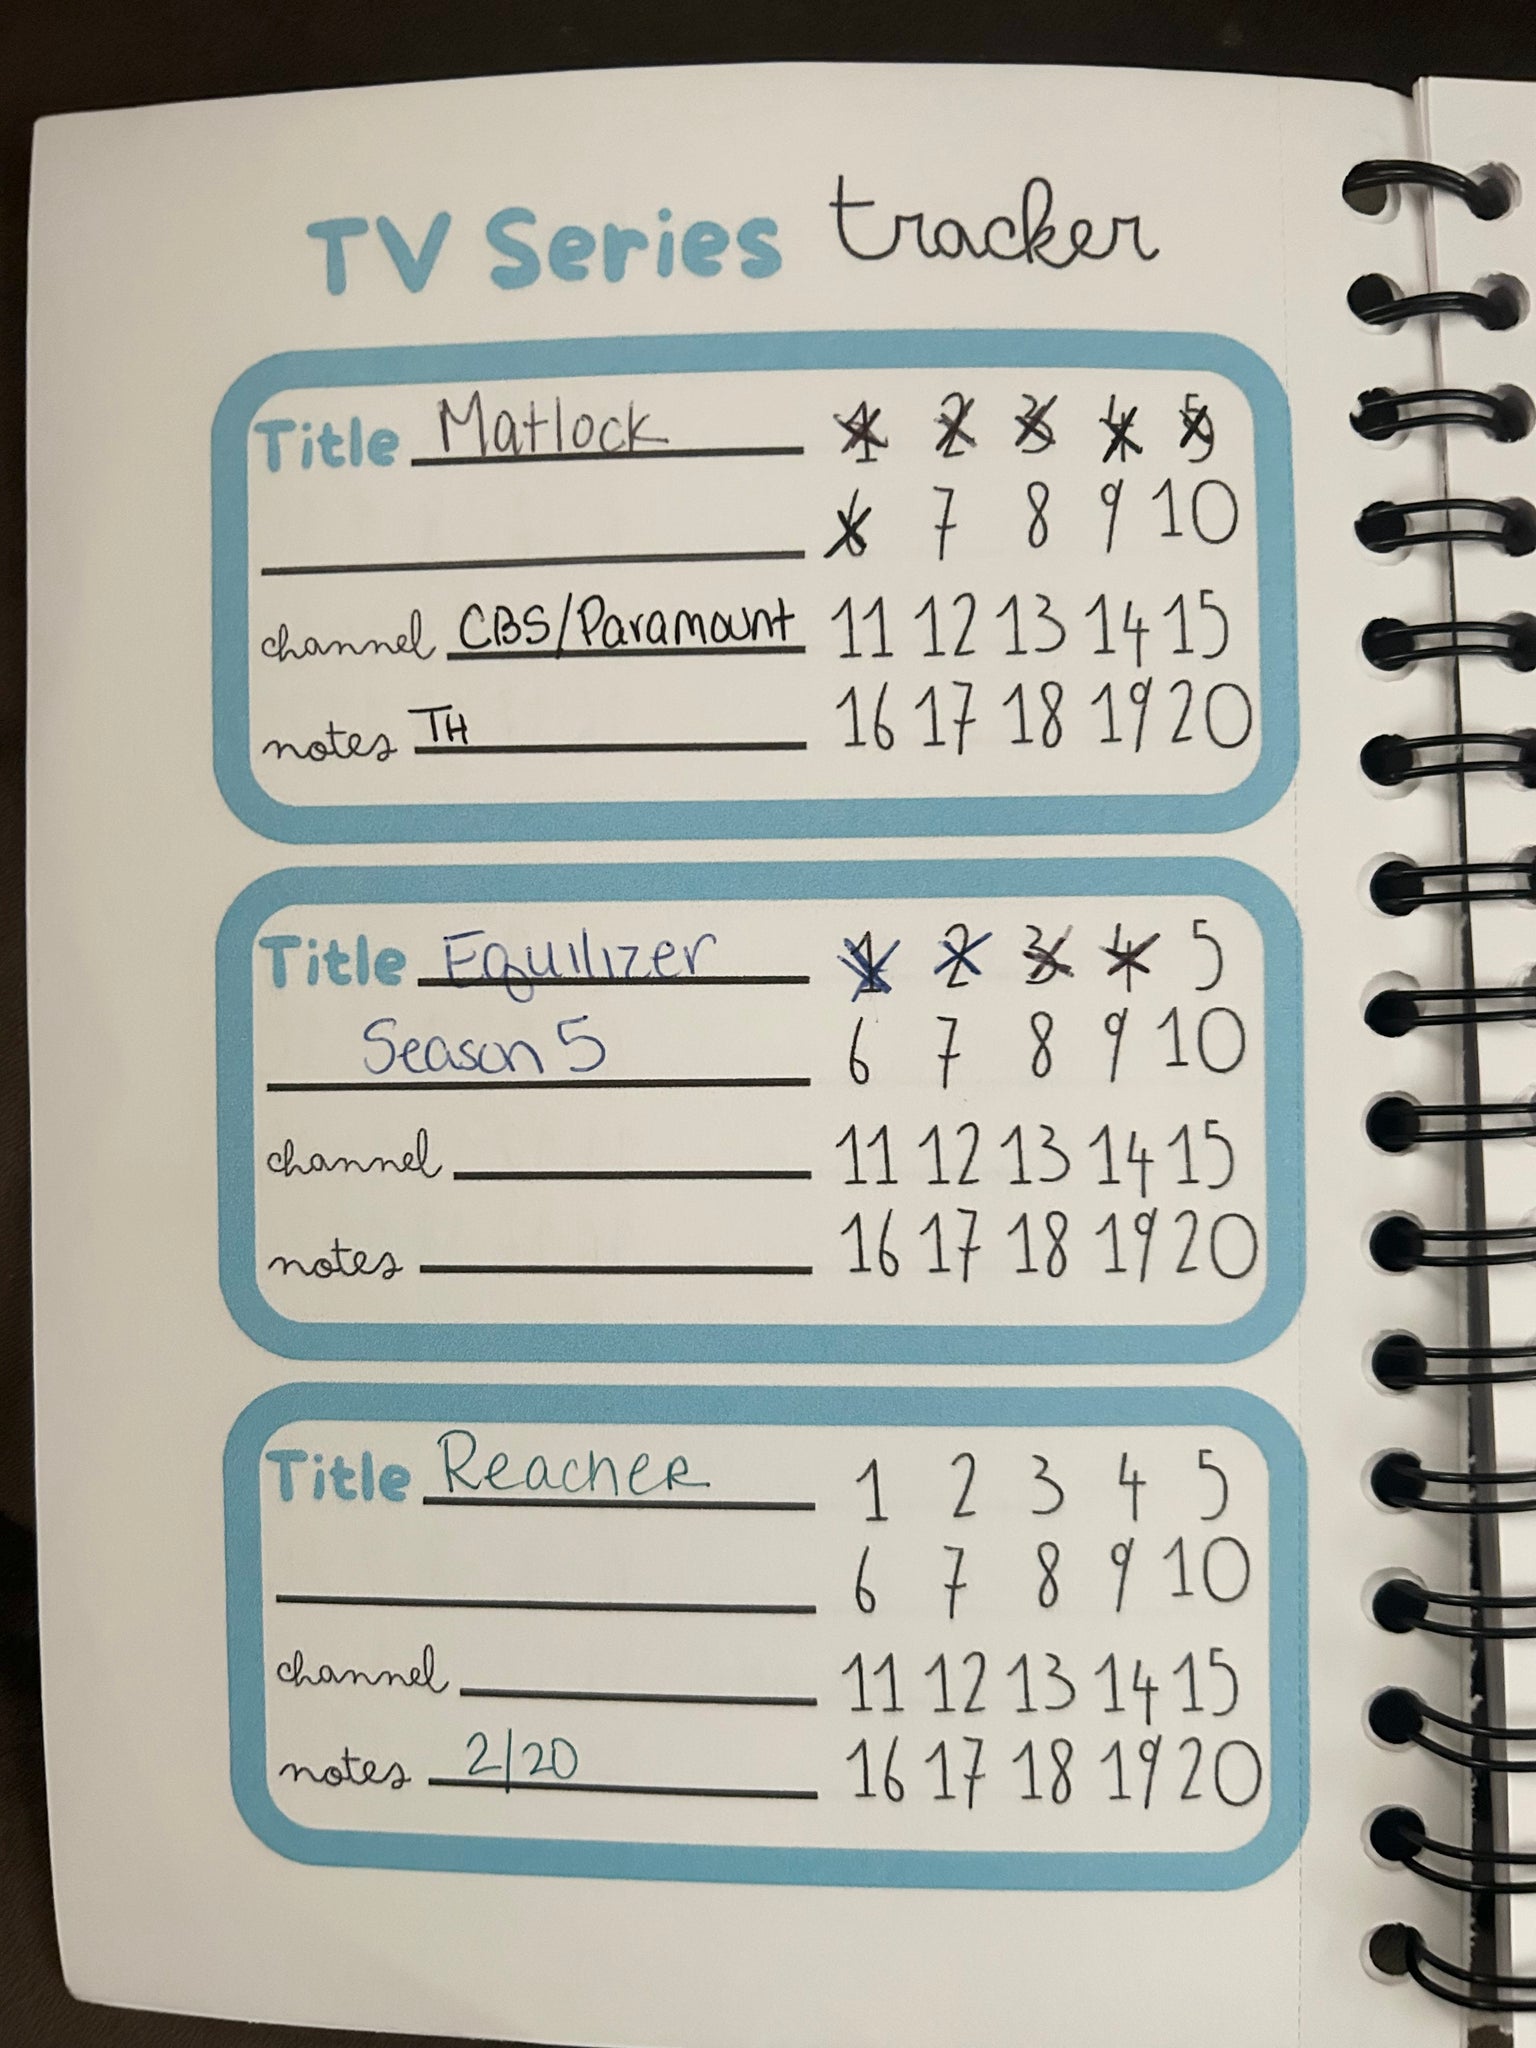 TV Series tracker
Title Matlock 1 2 3 4 5
6 7 8 9 10
channel CBS/Paramount 11 12 13 14 15
notes TH 16 17 18 19 20
Title Equilizer 1 2 3 4 5
Season 5 6 7 8 9 10
channel 11 12 13 14 15
notes 16 17 18 19 20
Title Reacher 1 2 3 4 5
6 7 8 9 10
channel 11 12 13 14 15
notes 2/20 16 17 18 19 20